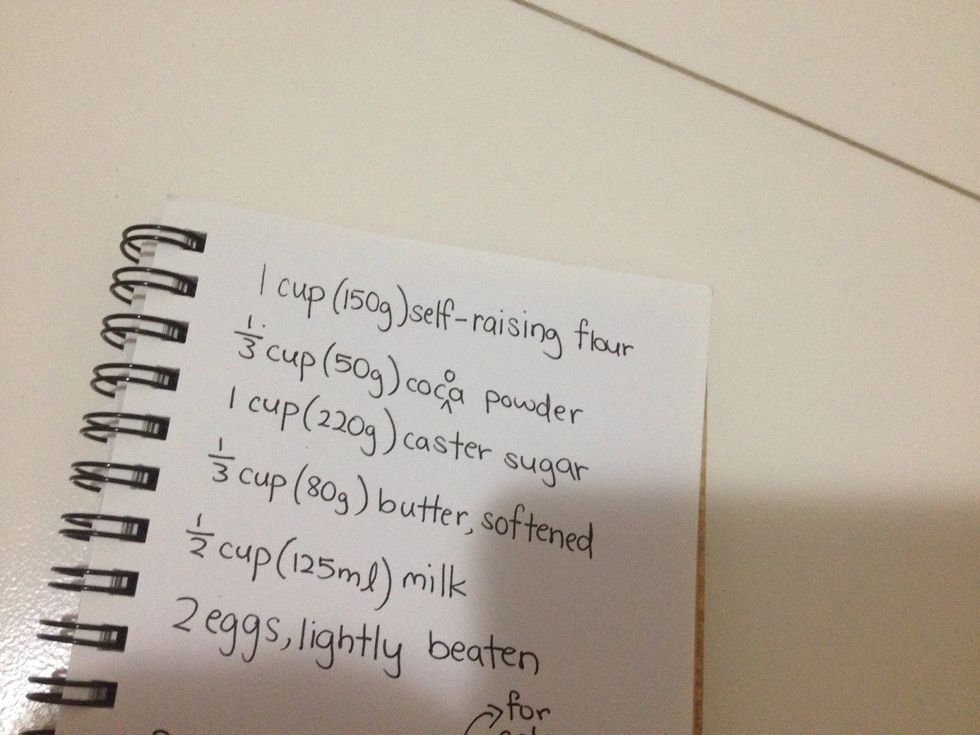 1 cup (150g) self-raising flour
1/3 cup (50g) cocoa powder
1 cup (220g) caster sugar
1/3 cup (80g) butter, softened
1/2 cup (125ml) milk
2 eggs, lightly beaten
for